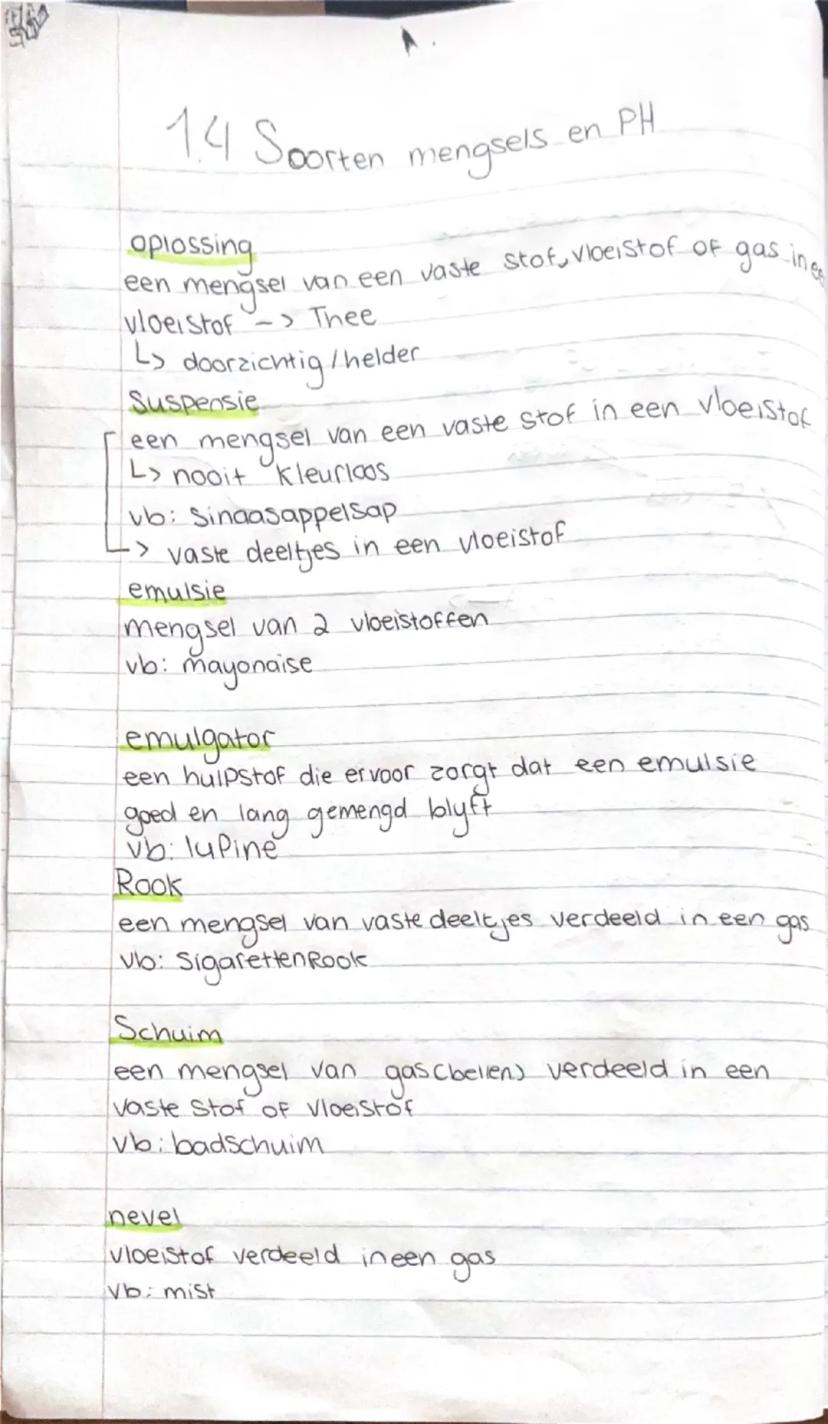 1.4 Soorten mengsels en PH
oplossing
een mengsel van een vaste stof, vloeistof of gas in ee
vloeistof --> Thee
↳ doorzichtig/helder
Suspensie
een mengsel van een vaste stof in een vloeistof
↳ nooit kleurloos
vb: sinaasappelsap
-> vaste deeltjes in een vloeistof
emulsie
mengsel van 2 vloeistoffen
vb: mayonaise
emulgator
een hulpstof die ervoor zorgt dat een emulsie
goed en lang gemengd blyft
vb: lupine
Rook
een mengsel van vaste deeltjes verdeeld in een gas
vb: SigarettenRook
Schuim
een mengsel van gas(bellen) verdeeld in een
vaste stof of vloeistof
vb: badschuim
nevel
vloeistof verdeeld in een gas
vb: mist